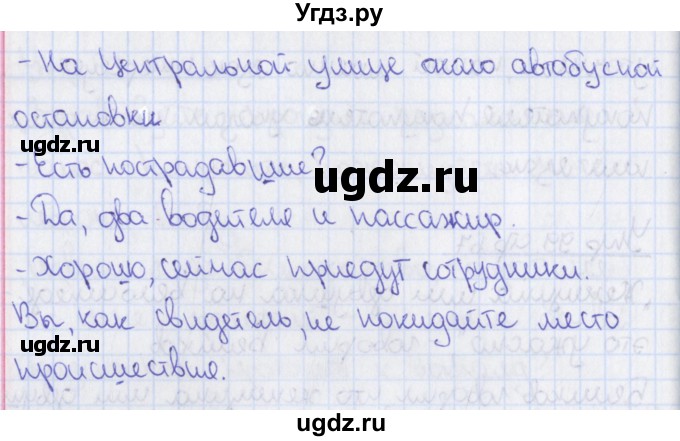 Угдз.ру
-На Центральной улице около автобусной
остановки
ugdz.ru
-Есть пострадавшие?
ugdz.ru
-Да, два водителя и пассажир.
-Хорошо, сейчас приедут сотрудники.
ugdz.ru
Вы, как свидетель, не покидайте место
ugdz.ru
происшествия.
ugdz.ru